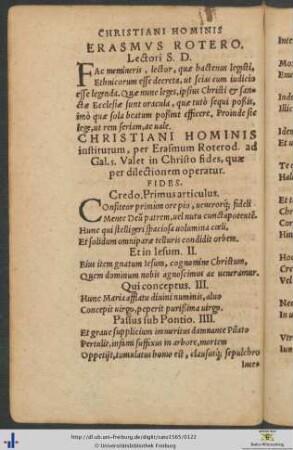 CHRISTIANI HOMINIS
ERASMVS ROTERO.
Lectori S. D.
FAc memineris, lector, quæ hactenus legisti,
Ethnicorum esse decreta, ut scias cum iudicio
esse legenda. Quæ nunc leges, ipsius Christi & san-
ctæ Ecclesiæ sunt oracula, quæ tutò sequi possis,
imò quæ sola beatum possint efficere, Proinde sic
lege, ut rem seriam, ac uale.
CHRISTIANI HOMINIS
institutum, per Erasmum Roterod. ad
Gal. 5. Valet in Christo fides, quæ
per dilectionem operatur.
FIDES.
Credo. Primus articulus.
COnfiteor primùm ore pio, uenerorq; fideli
Mente Deũ patrem, uel nutu cuncta potentẽ.
Hunc qui stelligeri spaciosa uolumina cœli,
Et solidum omniparæ telluris condidit orbem.
Et in Iesum. II.
Eius item gnatum Iesum, cognomine Christum,
Quem dominum nobis agnoscimus ac ueneramur.
Qui conceptus. III.
Hunc Maria afflatu diuini numinis, aluo
Concepit uirgo, peperit purissima uirgo.
Passus sub Pontio. IIII.
Et graue supplicium immeritus damnante Pilato
Pertulit, infami suffixus in arbore, mortem
Oppetijt, tumulatus humo est, claususq; sepulchro
Inter
http://dl.ub.uni-freiburg.de/diglit/cato1565/0122
© Universitätsbibliothek Freiburg